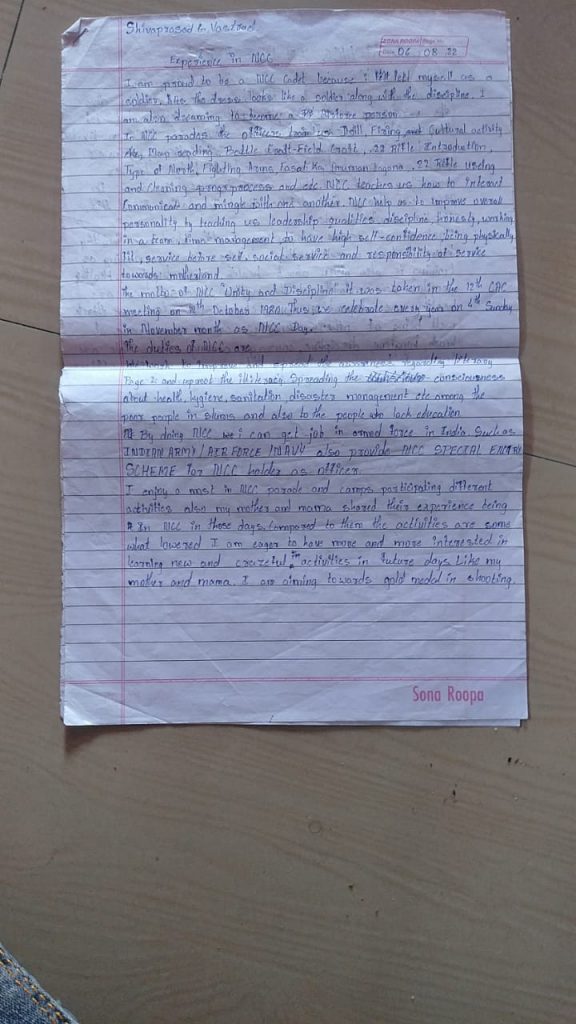 Shivaprasad G. Vastrad
SONA ROOPA Page No.
Date 06 08 22
Experience in NCC
I am proud to be a NCC Cadet because i felt myself as a
soldier. the dress looks like a soldier along with the discipline. I
am also dreaming to become a person.
In NCC parades the officers us Drill, Firing, and Cultural activity
Map reading, Battle Craft-Field Craft, .22 Rifle Introduction,
Type of North, Fighting Arms, Fasal Ka lagana, .22 Rifle useing
and Cleaning process and etc. NCC teaches us how to interact
Communicate and mingle with one another. NCC help us to improve overall
personality by teaching us leadership qualities, discipline, honesty, working
in a team, time management to have high self-confidence, being physically
fit, service before self, social service and responsibility of service
towards motherland.
The motto of NCC "Unity and Discipline" it was taken in the 12th CAC
meeting on October 1980. This we celebrate every year on 4th Sunday
in November month as NCC Day.
The duties of NCC are
to improve and spread the awareness regarding literacy
and uproot the illiteracy. Spreading the consciousness
about health, hygiene, sanitation disaster management etc among the
poor people in slums and also to the people who lack education
By doing NCC we can get job in armed force in India. Such as
INDIAN ARMY/AIR FORCE/NAVY also provide NCC SPECIAL ENTRY
SCHEME for NCC holder as officer.
I enjoy a most in NCC parade and camps participating different
activities also my mother and mama shared their experience being
in NCC in those days. Compared to them the activities are some
what lowered I am eager to have more and more interested in
learning new and in activities in future days. Like my
mother and mama. I am aiming towards gold medal in shooting.
Sona Roopa